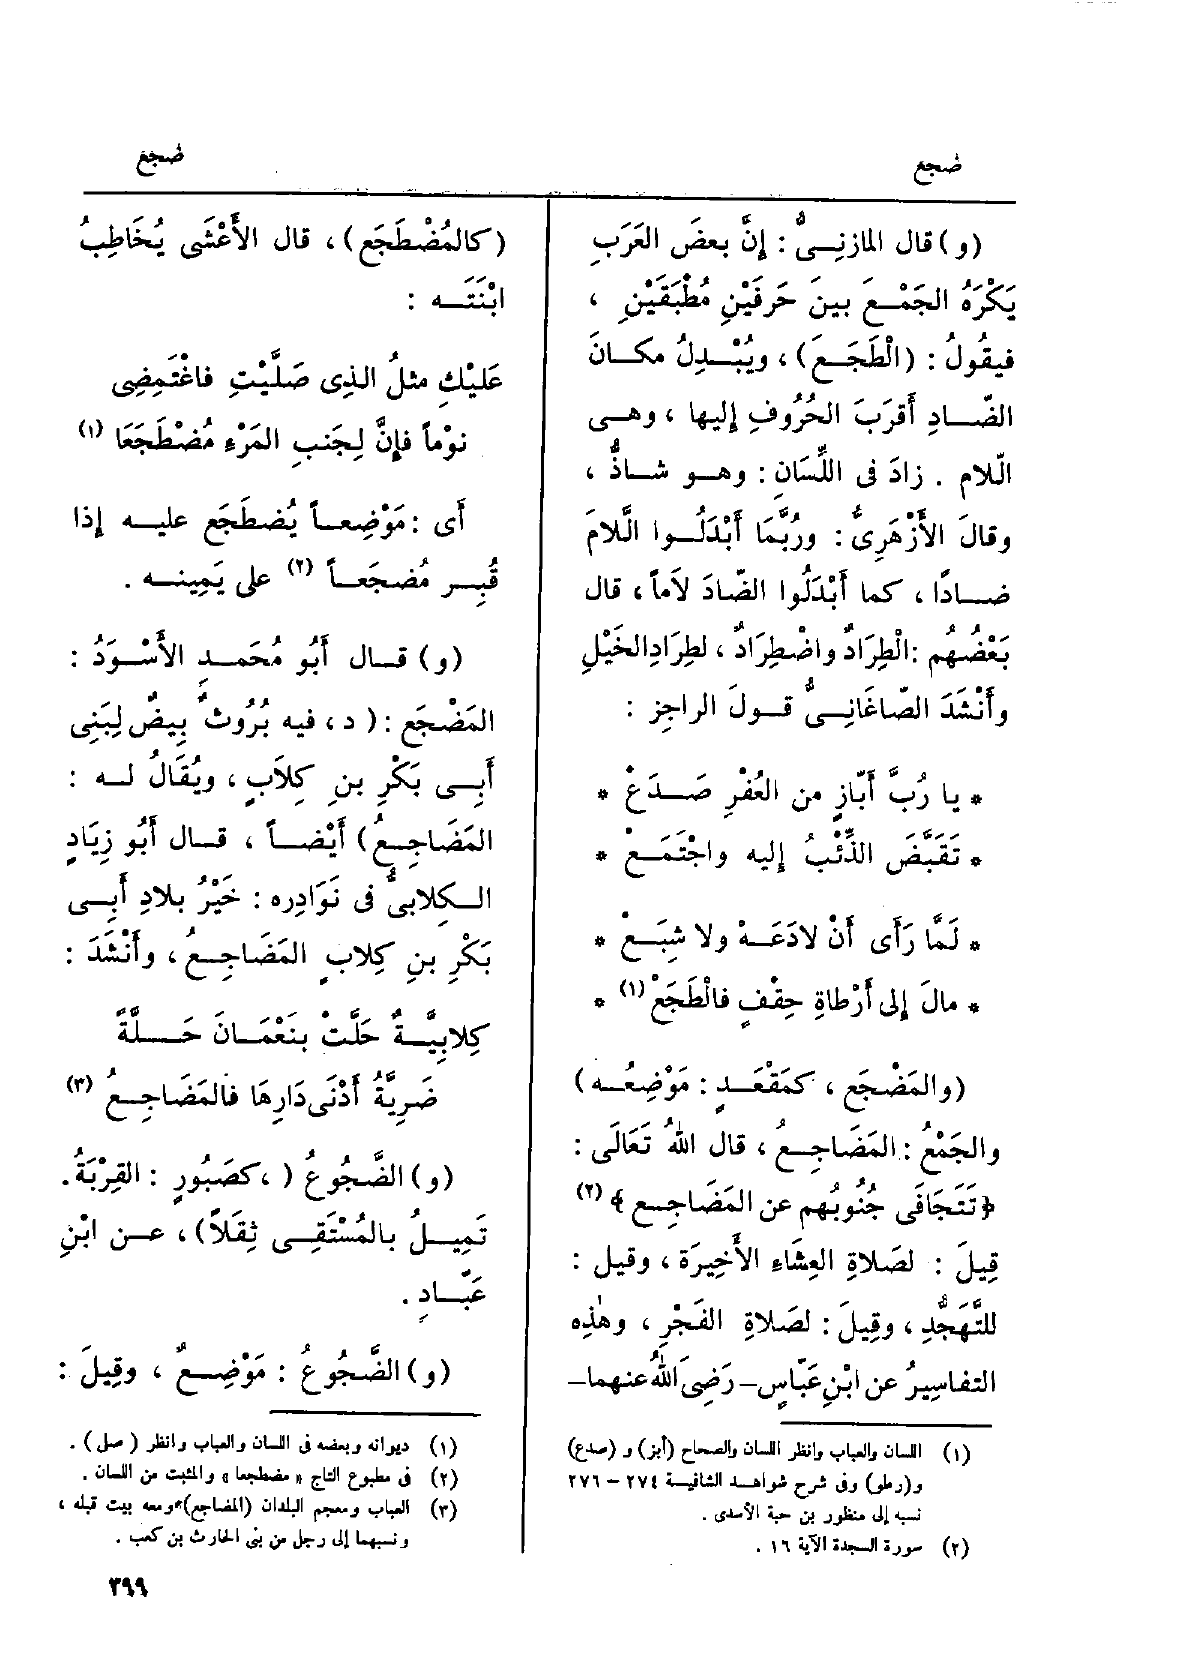 ضجع
ضجع
(و) قال المازِنِىُّ : إِنَّ بعضَ العَرَبِ
يَكْرَهُ الجَمْعَ بينَ حَرفَيْنِ مُطْبَقَيْنِ ،
فيقُولُ : (الْطَجَعَ) ، ويُبْدِلُ مكانَ
الضّادِ أَقرَبَ الحُرُوفِ إِليها ، وهى
الّلام . زادَ فى اللِّسَانِ : وهو شاذٌّ ،
وقالَ الأَزْهَرِىُّ : ورُبَّمَا أَبْدَلُوا الَّلامَ
ضادًا ، كما أَبْدَلُوا الضّادَ لاَماً ، قال
بَعْضُهُم : الْطِرَادٌ واضْطِرَادٌ ، لطِرَادِ الخَيْلِ
وأَنْشَدَ الصّاغَانِىُّ قولَ الراجِز :
* يا رُبَّ أَبّازٍ من العُفْرِ صَدَعْ *
* تَقَبَّضَ الذِّئْبُ إِليه واجْتَمَعْ *
* لَمَّا رَأَى أَنْ لادَعَهْ ولا شِبَعْ *
* مالَ إِلى أَرْطاةِ حِقْفٍ فالْطَجَعْ (١) *
(والمَضْجَع ، كمَقْعَدٍ : مَوْضِعُه)
والجَمْعُ : المَضَاجِعُ ، قال اللهُ تَعَالَى :
﴿تَتَجَافَى جُنُوبُهم عن المَضَاجِعِ﴾ (٢)
قِيلَ : لصَلاةِ العِشَاءِ الأَخِيرَة ، وقيل :
للتَّهَجُّدِ ، وقِيلَ : لصَلاةِ الفَجْرِ ، وهٰذِه
التفاسِيرُ عن ابْنِ عَبّاسٍ – رَضِىَ اللهُ عنهما –
(١) اللسان والعباب وانظر اللسان والصحاح (أبز) و (صدع)
و(رطو) وفى شرح شواهد الشافية ٢٧٤ – ٢٧٦
نسبه إلى منظور بن حبة الأسدى .
(٢) سورة السجدة الآية ١٦ .
(كالمُضْطَجَع) ، قال الأَعْشَى يُخَاطِبُ
ابْنَتَه :
عَلَيْكِ مثلُ الذِى صَلَّيْتِ فاغْتَمِضِى
نوْماً فإِنَّ لِجَنبِ المَرْءِ مُضْطَجَعَا (١)
أَى : مَوْضِعاً يُضطَجَع عليه إذا
قُبِر مُضجَعاً (٢) على يَمِينه .
(و) قال أَبُو مُحَمدٍ الأَسْوَدُ :
المَضْجَع : ( د ، فيه بُرُوثٌ بِيضٌ لِبَنِى
أَبِى بَكْرِ بنِ كِلاَبٍ ، ويُقَالُ له :
المَضَاجِعُ) أَيْضاً ، قال أَبُو زِيَادٍ
الكِلابىُّ فى نَوَادِره : خَيْرُ بلادِ أَبِى
بَكْرِ بنِ كِلابٍ المَضَاجِعُ ، وأَنْشَدَ :
كِلابِيَّةٌ حَلَّتْ بنَعْمَانَ حَلَّةً
ضَرِيَّةُ أَدْنَى دَارِهَا فالمَضَاجِعُ (٣)
(و) الضَّجُوعُ ( ، كصَبُورٍ : القِرْبَةُ .
تَمِيلُ بالمُسْتَقِى ثِقَلاً) ، عن ابْنِ
عَبّادٍ .
(و) الضَّجُوعُ : مَوْضِعٌ ، وقِيلَ :
(١) ديوانه وبعضه فى اللسان والعباب وانظر (صل) .
(٢) فى مطبوع التاج « مضطجعا » والمثبت من اللسان .
(٣) العباب ومعجم البلدان (المضاجع) ومعه بيت قبله ،
ونسبهما إلى رجل من بنى الحارث بن كعب .
٣٩٩